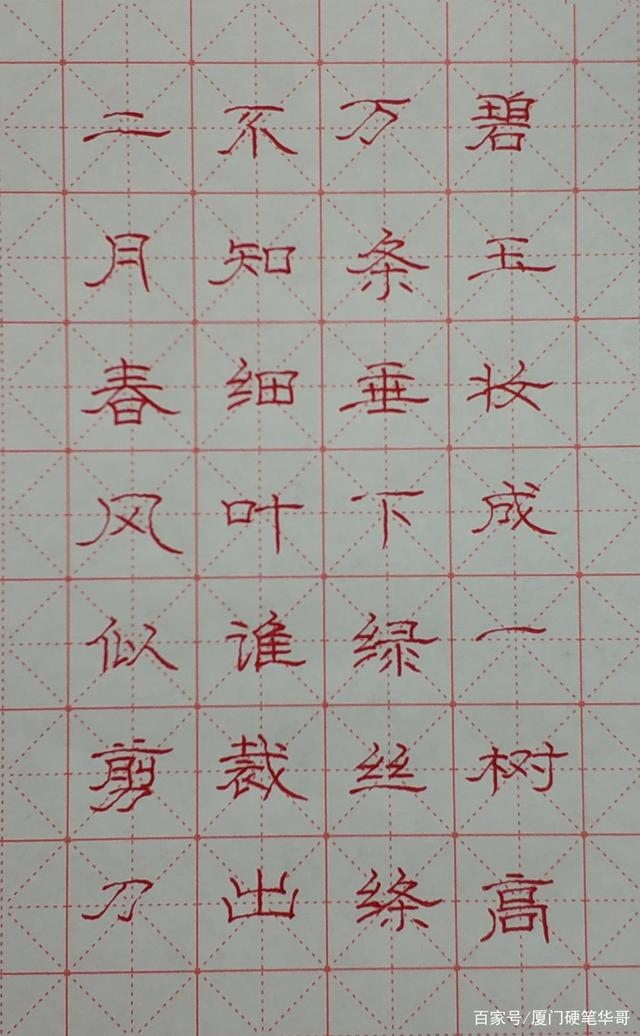 碧玉妆成一树高
万条垂下绿丝绦
不知细叶谁裁出
二月春风似剪刀
百家号/厦门硬笔华哥